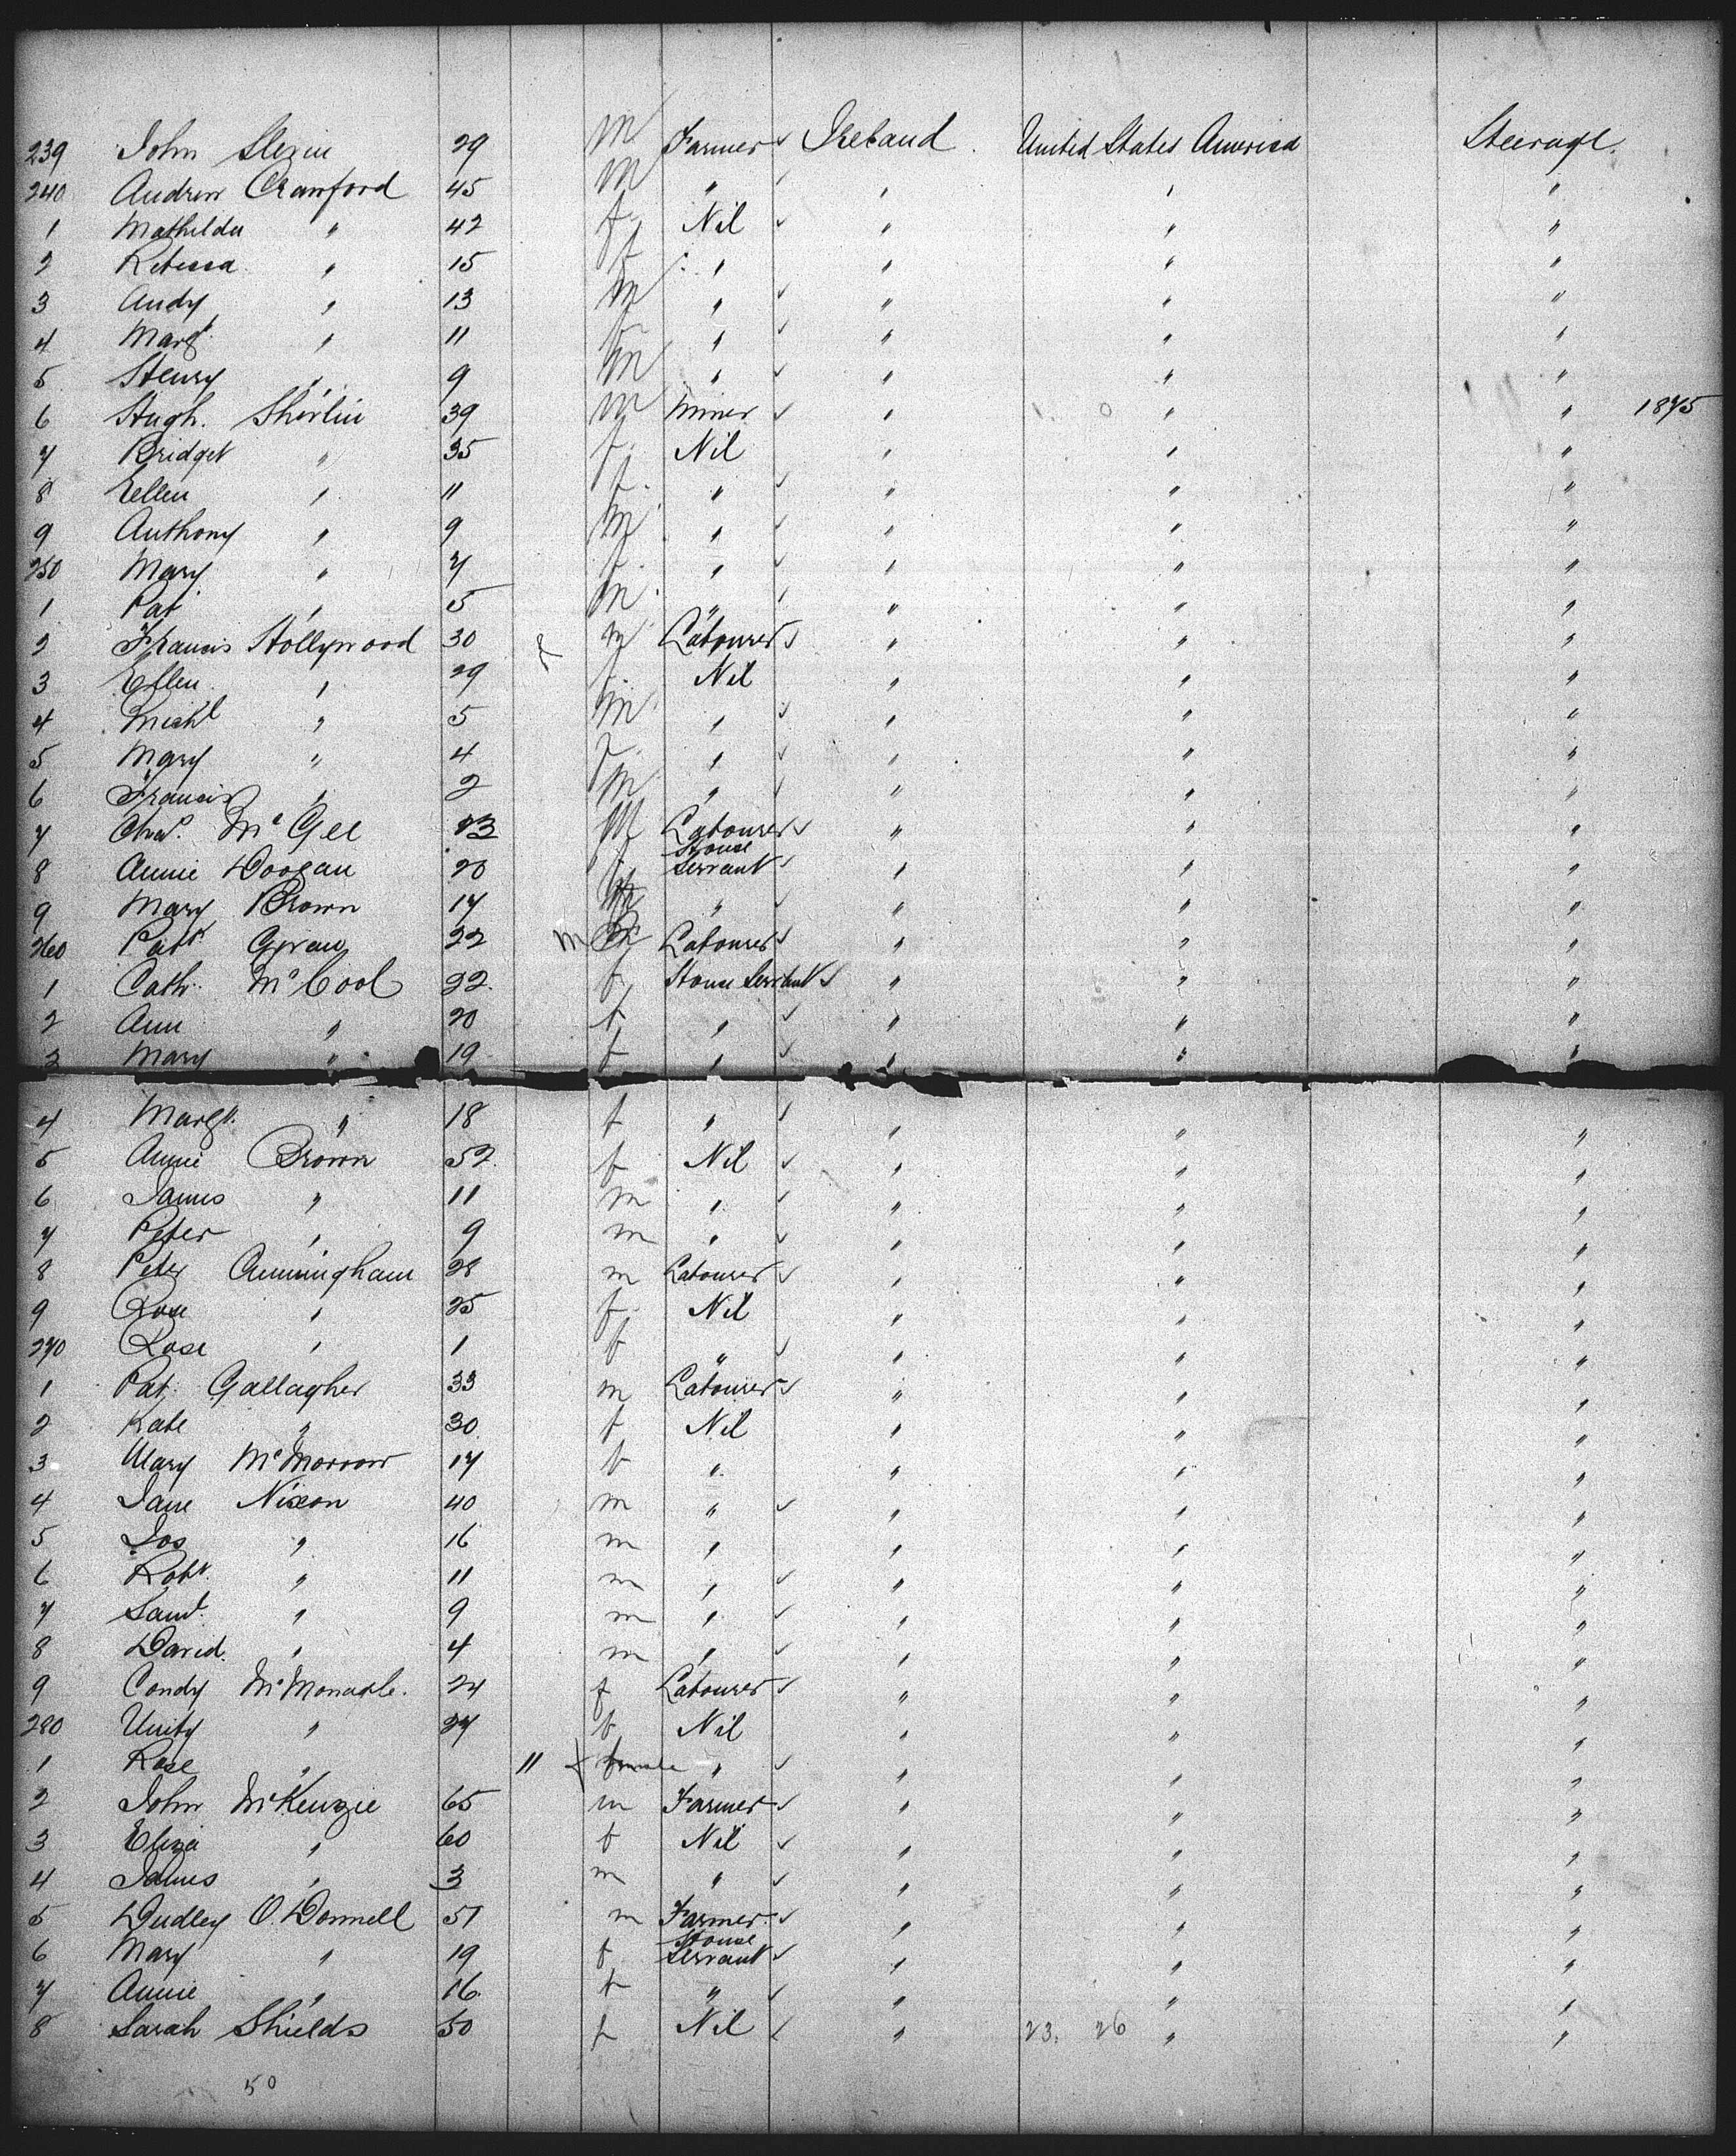 239 John Slevin 29 m Farmer Ireland United States America Steerage
240 Andrew Crawford 45 m " " " "
1 Mathilda " 42 f Nil " " "
2 Rebecca " 15 f " " " "
3 Andy " 13 m " " " "
4 Margt. " 11 f " " " "
5 Henry " 9 m " " " "
6 Hugh. Sherlin 39 m Miner " " " 1875
7 Bridget " 35 f Nil " " "
8 Ellen " 11 f " " " "
9 Anthony " 9 m " " " "
250 Mary " 7 f " " " "
1 Pat " 5 m " " " "
2 Francis Hollywood 30 m Labourer " " "
3 Ellen " 29 f Nil " " "
4 Michl " 5 m " " " "
5 Mary " 4 f " " " "
6 Francis " 2 m " " " "
7 Chas. McGee 23 m Labourer " " "
8 Annie Doogan 20 f House Servant " " "
9 Mary Brown 17 " " " "
260 Patk 22 m Labourer " " "
1 Cath. McCool 22 f House Servant " " "
2 Ann " 20 f " " " "
3 Mary " 19 f " " " "
4 Margt. " 18 f " " " "
5 Annie Brown 52 f Nil " " "
6 James " 11 m " " " "
7 Peter " 9 m " " " "
8 Peter Cunningham 28 m Labourer " " "
9 Rose " 25 f Nil " " "
270 Rose " 1 f " " " "
1 Pat. Gallagher 33 m Labourer " " "
2 Kate " 30 f Nil " " "
3 Mary McMorrow 17 f " " " "
4 Jane Nixon 40 m " " " "
5 Jos " 16 m " " " "
6 Robt. " 11 m " " " "
7 Saml. " 9 m " " " "
8 David. " 4 m " " " "
9 Condy McMonagle. 24 f Labourer " " "
280 Unity " 27 f Nil " " "
1 Rose " 11 f female " " " "
2 John McKenzie 65 m Farmer " " "
3 Eliza " 60 f Nil " " "
4 James " 3 m " " " "
5 Dudley O.Donnell 51 m Farmer " " "
6 Mary " 19 f House Servant " " "
7 Annie " 16 f " " " "
8 Sarah Shields 50 f Nil " 23. 26 " "
50